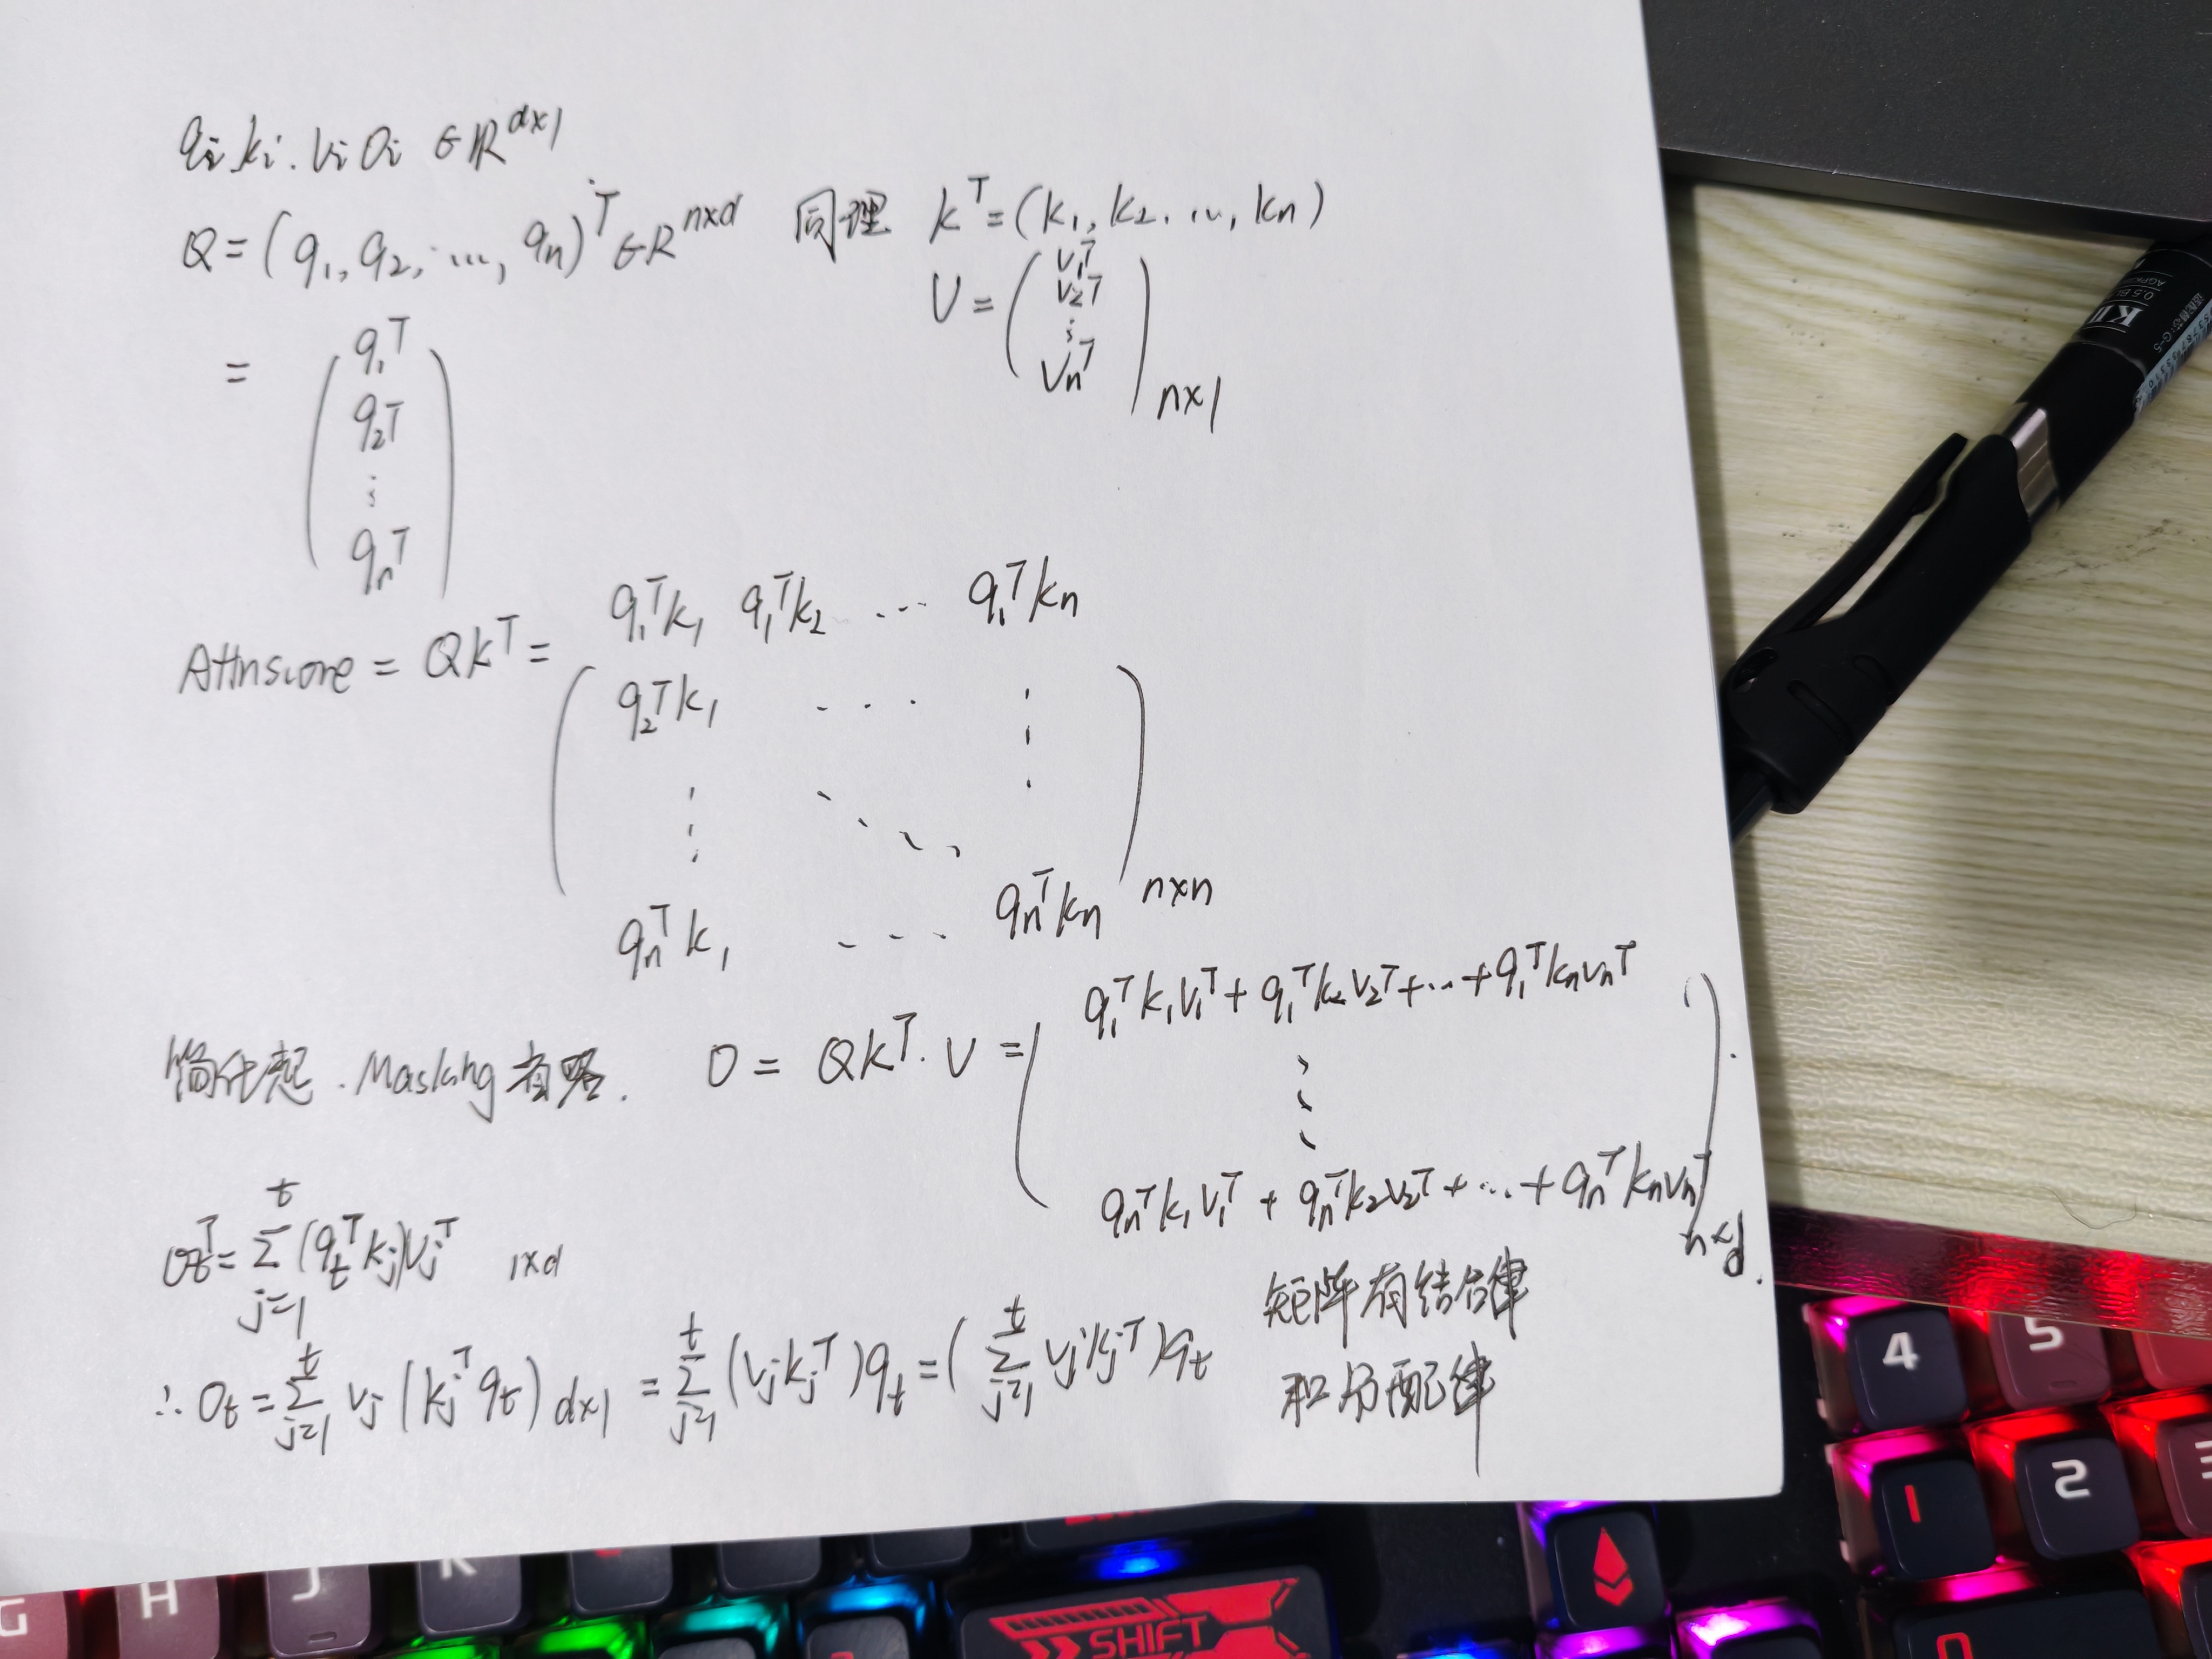 qi ki. vi oi ∈ R^{d×1}
Q = (q₁, q₂, ..., qn)^T ∈ R^{n×d} 同理 K^T = (k₁, k₂, ..., kn)
= ( q₁^T
q₂^T
⋮
qn^T )
V = ( v₁^T
v₂^T
⋮
vn^T ) n×1
Attnscore = QK^T = ( q₁^T k₁ q₁^T k₂ ... q₁^T kn
q₂^T k₁ ... ⋮
⋮ ⋱
qn^T k₁ ... qn^T kn ) n×n
简化起. Masking省略. O = QK^T · V = ( q₁^T k₁ v₁^T + q₁^T k₂ v₂^T + ... + q₁^T kn vn^T
⋮
qn^T k₁ v₁^T + qn^T k₂ v₂^T + ... + qn^T kn vn^T ) n×d.
ot^T = Σ_{j=1}^{t} (qt^T kj) vj^T 1×d
∴ Ot = Σ_{j=1}^{t} vj (kj^T qt) d×1 = Σ_{j=1}^{t} (vj kj^T) qt = ( Σ_{j=1}^{t} vj kj^T ) qt
矩阵有结合律
和分配律
4 5
1 2 3
0
G H J K
SHIFT
KI
0.5
G-5